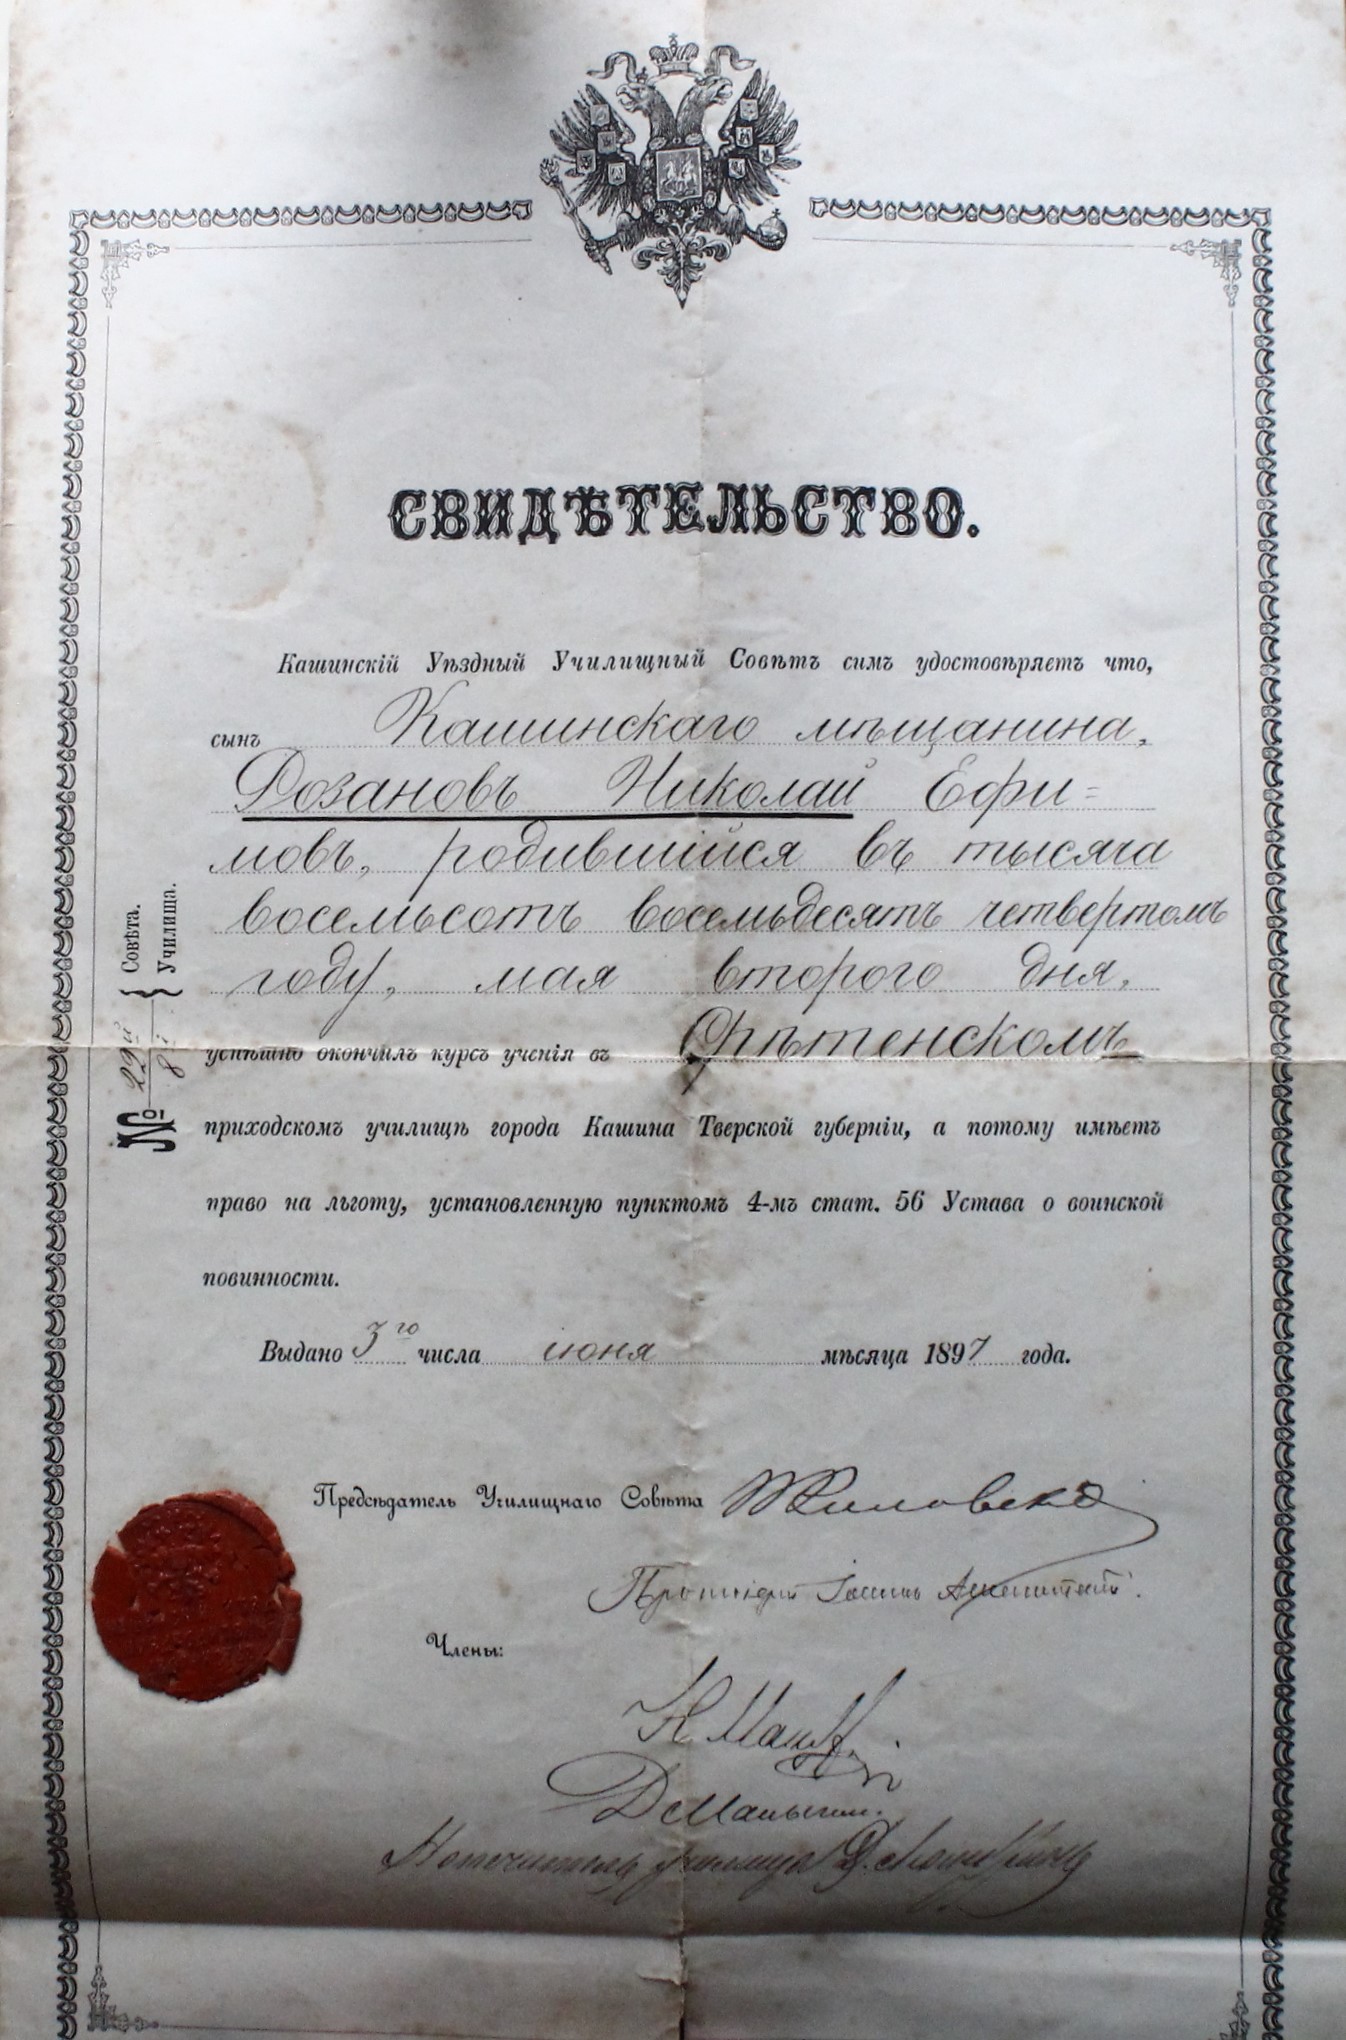 СВИДѢТЕЛЬСТВО.
Кашинскій Уѣздный Училищный Совѣтъ симъ удостовѣряетъ что,
сынъ Кашинскаго мѣщанина,
Розановъ Николай Ефи=
мовъ, родившійся въ тысяча
восемьсотъ восемьдесятъ четвертомъ
году, мая второго дня,
успѣшно окончилъ курсъ ученія въ Срѣтенскомъ
приходскомъ училищѣ города Кашина Тверской губерніи, а потому имѣетъ
право на льготу, установленную пунктомъ 4-мъ стат. 56 Устава о воинской
повинности.
Выдано 3го числа іюня мѣсяца 1897 года.
№ 229й Совѣта.
8й Училища.
Предсѣдатель Училищнаго Совѣта
Протоіерей Іоаннъ
Члены:
Попечитель училища